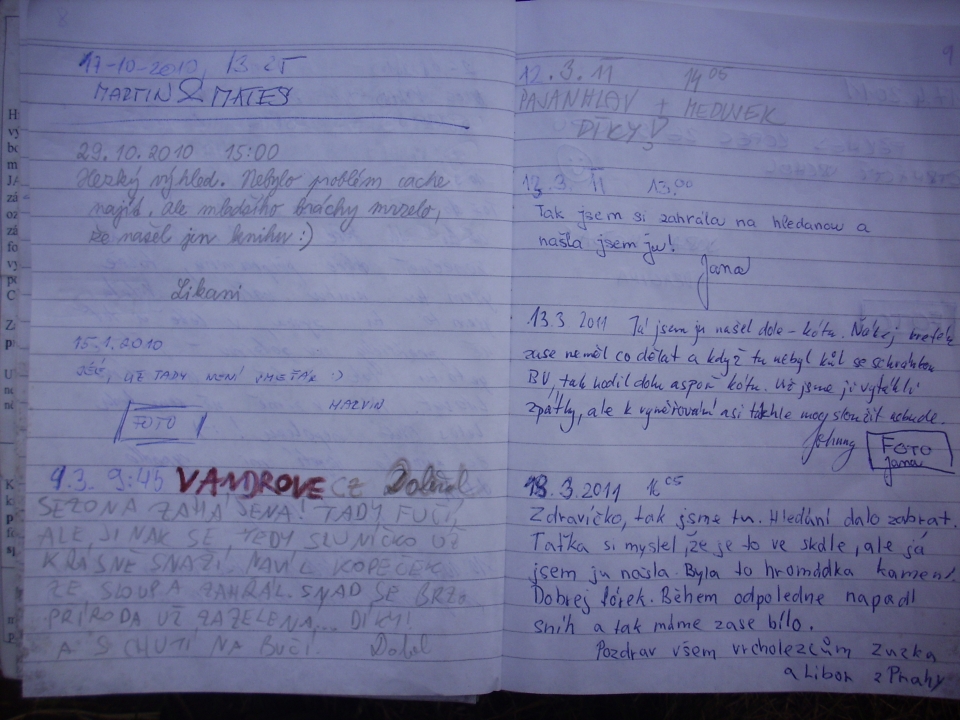 8
17-10-2010, 13 ČT
MARTIN & MATEJ
29.10.2010 15:00
Hezký výhled. Nebylo problém cache
najít, ale mladšího bráchy mrzelo,
že našel jen knihu :)
Likani
15.1.2010
JÉÉ, UŽ TADY NENÍ :)
MARVIN
FOTO
9.3. 9:45 VANDROVE CZ
SEZONA ZAHÁJENA! TADY FUČÍ,
ALE JINAK SE, TEDY SLUNÍČKO UŽ
KRÁSNĚ SNAŽÍ. KOPEČEK
ZE SLOUPA ZAHRÁL. SNAD SE BRZO
PŘÍRODA UŽ ZAZELENÁ... DÍKY!
A S CHUTÍ NA BUČÍ.
9
12.3.11 14 05
PAJANHLAV + MEDINEK
DÍKY
13.3 11 13,00
Tak jsem si zahrála na hledanou a
našla jsem ju!
Jana
13.3 2011 Já jsem ju našel dole - kótu.
zase neměl co dělat a když tu nebyl kůl se schránkou
BV, tak hodil dolu aspoň kótu. Už jsme ji vytáhli
zpátky, ale k vyměřování asi takhle moc sloužit nebude.
Johnny FOTO
Jana
13.3.2011 16 05
Zdravíčko, tak jsme tu. Hledání dalo zabrat.
Taťka si myslel, že je to ve skále, ale já
jsem ju našla. Byla to hromádka kamení.
Dobrej fórek. Během odpoledne napadl
sníh a tak máme zase bílo.
Pozdrav všem vrcholezcům Zuzka
a Libor z Prahy